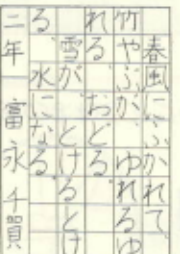 春風にふかれて、
竹やぶが、ゆれるゆ
れる。おどる。
雪が、とけるとけ
る。水になる。
二年 富永千賀